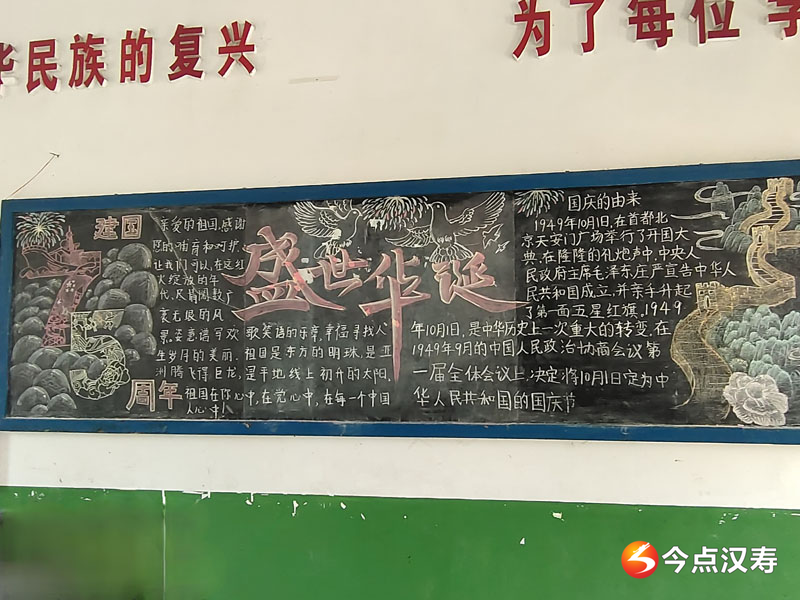 华民族的复兴
为了每位学
建国
75
周年
亲爱的祖国,感谢
您的油育和对护,
让我们可以,在这红
大绽放的年
代,尽情阅数了
素无垠的风
景,恣意谱写欢
生岁月的美丽.
洲腾飞得巨龙,
盛世华诞
歌笑语的乐章,幸福寻找人
祖国是东方的明珠,是亚
是平地线上初升的太阳.
祖国在你心中,在党心中,在每一个中国
人心中!
国庆的由来
1949年10月1日,在首都北
京天安门广场举行了开国大
典,在隆隆的礼炮声中,中央人
民政府主席毛泽东庄严宣告中华人
民共和国成立,并亲手升起
了第一面五星红旗.1949
年10月1日,是中华历史上一次重大的转变,在
1949年9月的中国人民政治协商会议第
一届全体会议上,决定将10月1日定为中
华人民共和国的国庆节
今点汉寿